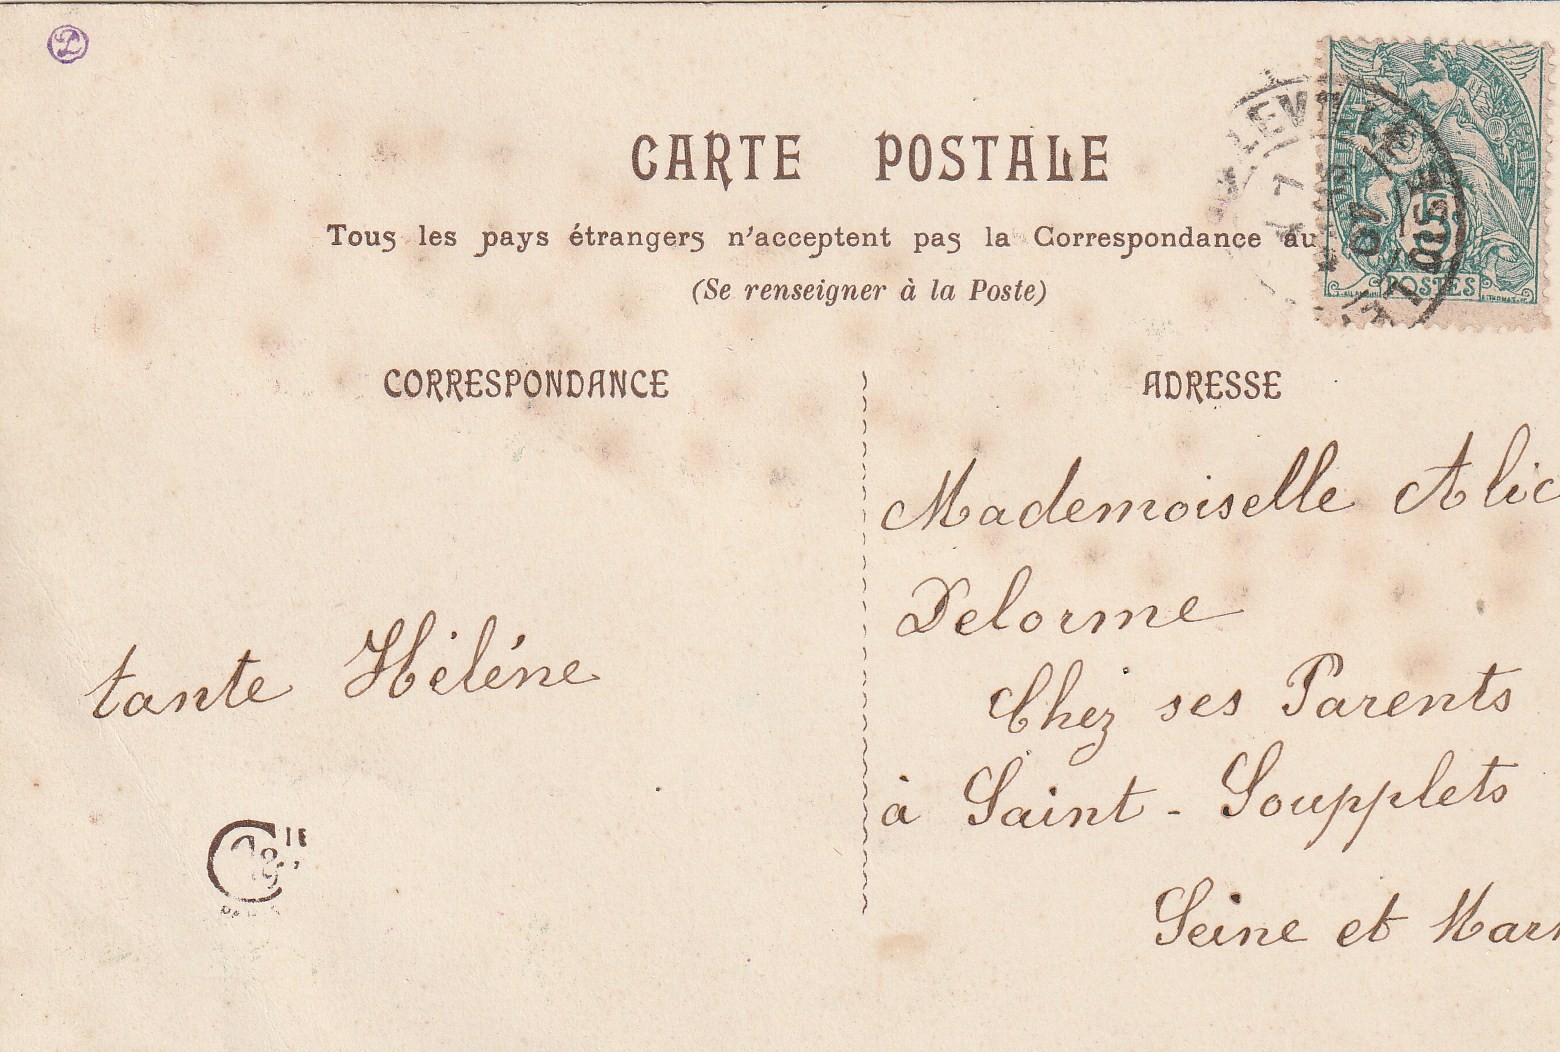 CARTE POSTALE
Tous les pays étrangers n'acceptent pas la Correspondance au
(Se renseigner à la Poste)
CORRESPONDANCE
ADRESSE
tante Héléne
Mademoiselle Alic
Delorme
Chez ses Parents
à Saint-Soupplets
Seine et Mar
POSTES
OISE
07